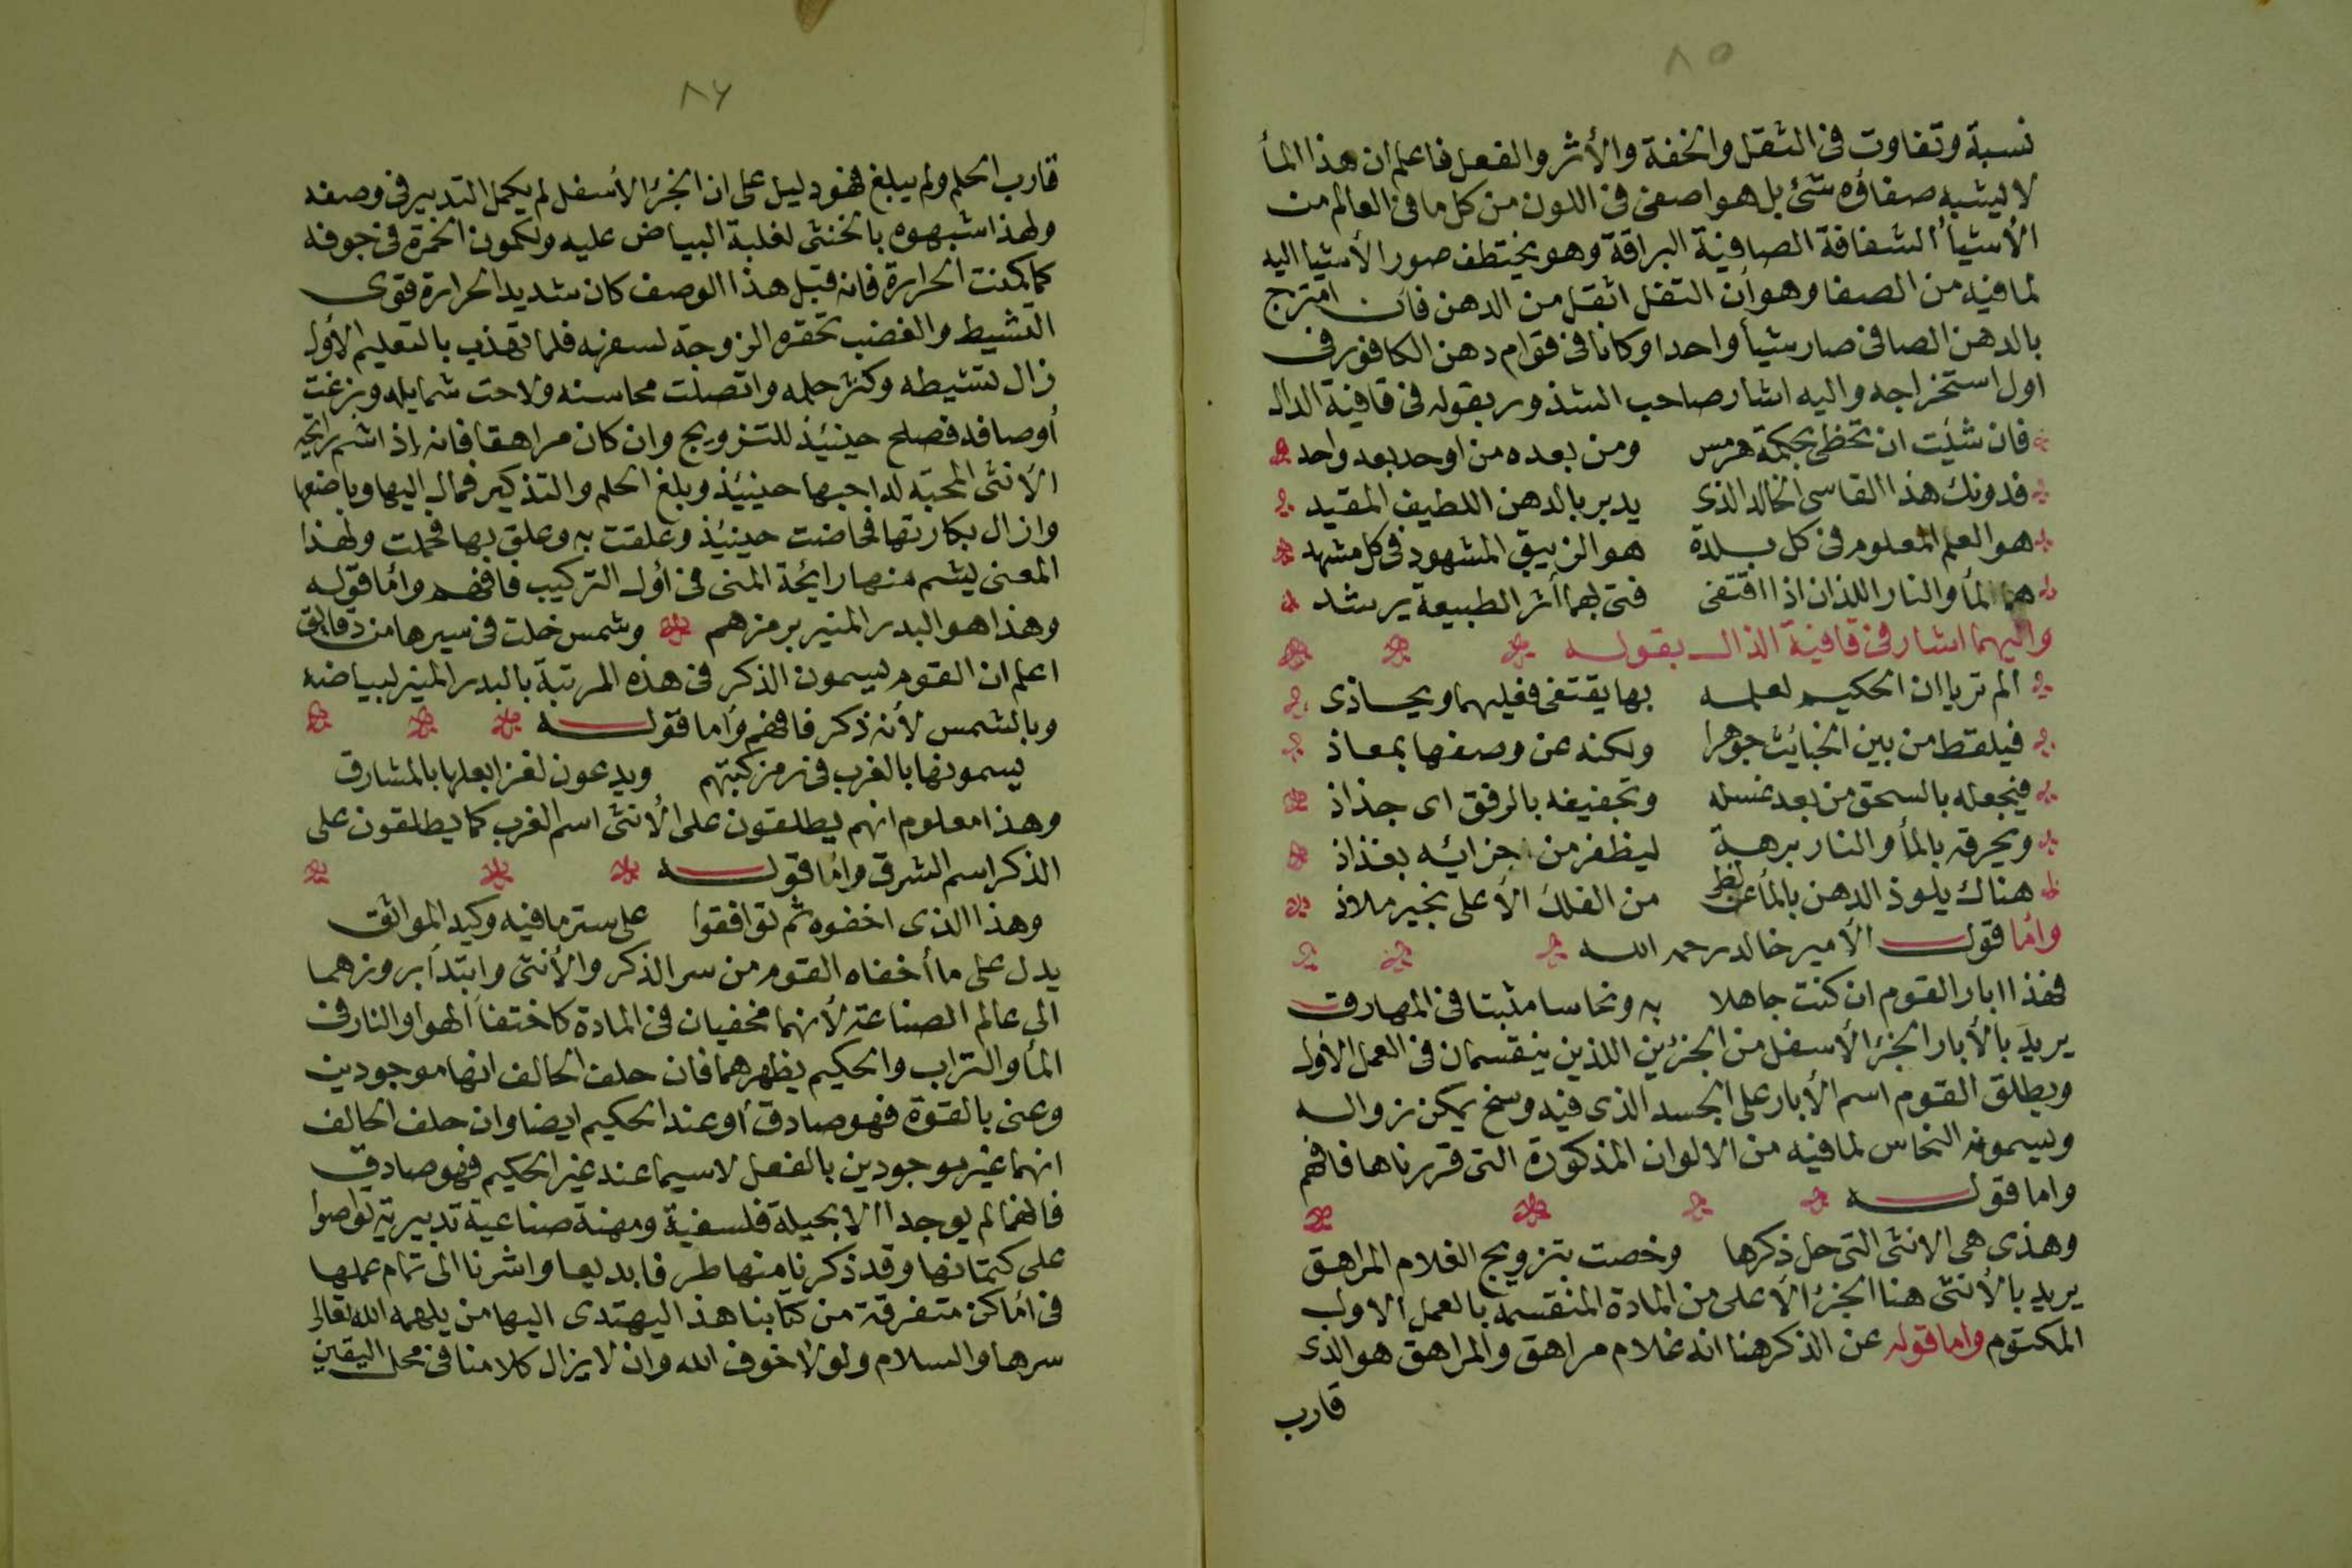 ٨٥
نسبة وتفاوت في الثقل والخفة والأثر والفعل فاعلم ان هذا المأ
لا يشبه صفاؤه شئ بل هو اصفى في اللون من كل ما في العالم من
الأشيأ الشفافة الصافية البراقة وهو يختطف صور الأشيا اليه
لما فيه من الصفا وهو أن الثفل اثقل من الدهن فان امتزج
بالدهن الصافى صار شيأ واحدا وكانا في قوام دهن الكافور في
اول استخراجه واليه اشار صاحب الشذور بقوله في قافية الدال
فان شئت ان تحظى بحكمة هرمس ومن بعده من اوحد بعد واحد
فدونك هذا القاسى الخالد الذى يدبر بالدهن اللطيف المقيد
هو العلم المعلوم في كل بلدة هو الزيبق المشهود في كل مشهد
هما المأ والنار اللذان اذا اقتفى فتى بهما أثر الطبيعة يرشد
واليهما اشار في قافية الذال بقوله
الم تريا ان الحكيم لعلمه بها يقتفى فعليهما ويحاذى
فيلقط من بين الخبايث جوهرا ولكنه عن وصفها بمعاذ
فيجعله بالسحق من بعد غسله وتجفيفه بالرفق اى جذاذ
ويحرقه بالمأ والنار برهة ليظفر من اجزائه بفذاذ
هناك يلوذ الدهن بالمأ عن لظى من الفلك الأعلى بخير ملاذ
وأما قول الأمير خالد رحمه الله
فهذا ابار القوم ان كنت جاهلا به ونحاسا مثبتا في المهارق
يريد بالأبار الجزء الأسفل من الجزئين اللذين ينقسمان في العمل الأول
ويطلق القوم اسم الأبار على الجسد الذى فيه وسخ يمكن زواله
ويسمونه النحاس لما فيه من الالوان المذكورة التى قررناها فافهم
واما قوله
وهذى هى الانثى التى حل ذكرها وخصت بتزويج الغلام المراهق
يريد بالأنثى هنا الجزء الأعلى من المادة المنقسمة بالعمل الاول
المكتوم واما قوله عن الذكر هنا انه غلام مراهق والمراهق هو الذى
قارب
٨٦
قارب الحلم ولم يبلغ فهو دليل على ان الجزء الأسفل لم يكمل التدبير في وصفه
ولهذا شبهوه بالخنثى لغلبة البياض عليه ولكمون الحمرة في جوفه
كما كمنت الحرارة فانه قبل هذا الوصف كان شديد الحرارة قوى
التشيط والغضب تحقره الزوجة لسفهه فلما تهذب بالتعليم الأول
زال تشيطه وكثر حلمه واتصلت محاسنه ولاحت شمايله وبزغت
أوصافه فصلح حينئذ للتزويج وان كان مراهقا فانه إذ اشم رايحة
الأنثى المحبة له احبها حينئذ وبلغ الحلم والتذكير فمال اليها وباضعها
وازال بكارتها فحاضت حينئذ وعلقت به وعلق بها فحملت ولهذا
المعنى يشم منها رايحة المنى في أول التركيب فافهم وأما قوله
وهذا هو البدر المنير برمزهم وشمس خلت في سيرها من دقايق
اعلم ان القوم يسمون الذكر في هذه المرتبة بالبدر المنير لبياضه
وبالشمس لأنه ذكر فافهم وأما قوله
يسمونها بالغرب في رمز كتبهم ويدعون لغزا بعلها بالمشارق
وهذا معلوم انهم يطلقون على الأنثى اسم الغرب كما يطلقون على
الذكر اسم الشرق وأما قوله
وهذا الذى اخفوه ثم توافقوا على ستر ما فيه وكيد المواثق
يدل على ما أخفاه القوم من سر الذكر والأنثى وابتدأ بروزهما
الى عالم الصناعة لأنهما مخفيان في المادة كاختفأ الهوا والنار في
المأ والتراب والحكيم يظهرهما فان حلف الحالف انها موجودين
وعنى بالقوة فهو صادق أو عند الحكيم ايضا وان حلف الحالف
انهما غير موجودين بالفعل لاسيما عند غير الحكيم فهو صادق
فانهما لم يوجدا الا بحيلة فلسفية ومهنة صناعية تدبيرية تواصوا
على كتمانها وقد ذكرنا منها طرفا بديعا واشرنا الى تمام عملها
في أماكن متفرقة من كتابنا هذا ليهتدى اليها من يلهمه الله تعالى
سرها والسلام ولولا خوف الله وان لا يزال كلامنا في محل اليقين